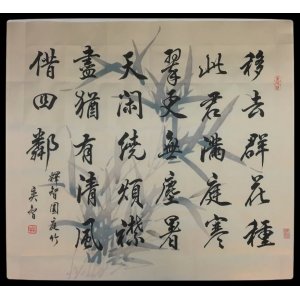 移去群花種
此君滿庭寒
翠更無塵暑
天閑繞煩襟
盡猶有清風
借四鄰
釋智圓庭竹